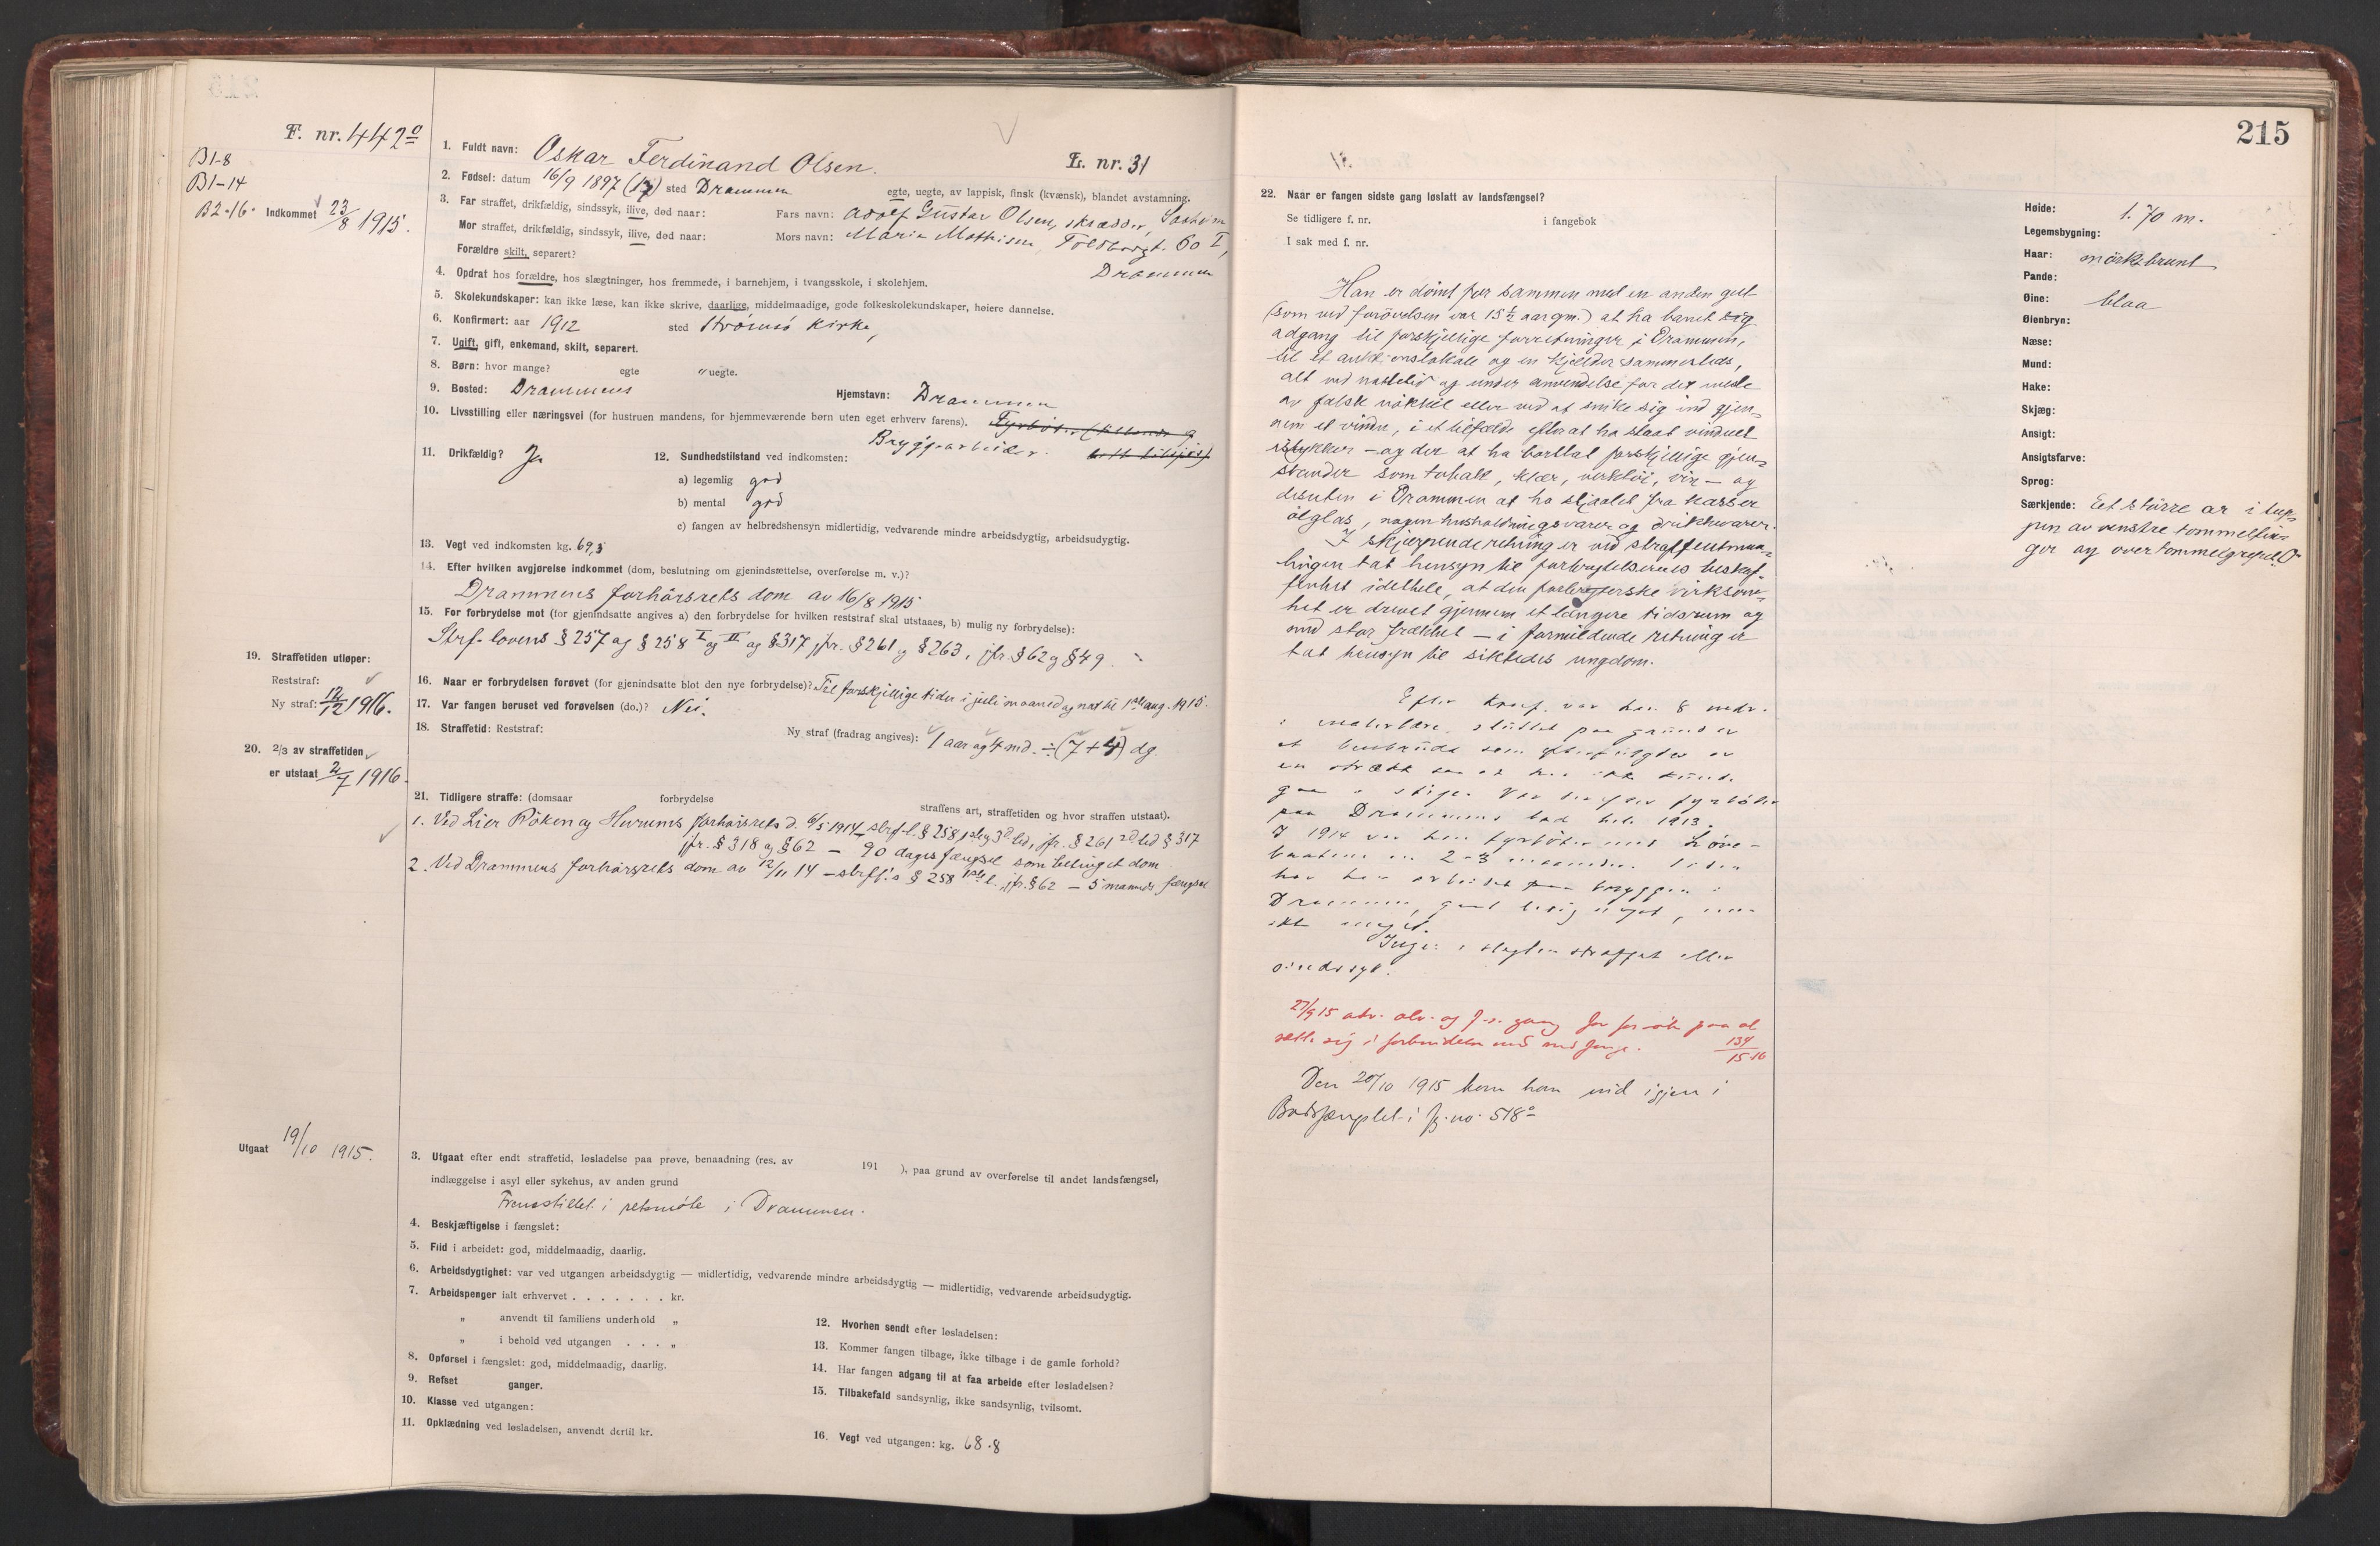 F. nr. 442º
B1-8
B1-14
B2-16.
Indkommet 23/8 1915.
19. Straffetiden utløper:
Reststraf:
Ny straf: 12/12 1916.
20. 2/3 av straffetiden
er utstaat 2/7 1916.
Utgaat 19/10 1915.
L. nr. 31
1. Fuldt navn: Oskar Ferdinand Olsen.
2. Fødsel: datum 16/9 1897 (17) sted Drammen egte, uegte, av lappisk, finsk (kvænsk), blandet avstamning.
3. Far straffet, drikfældig, sindssyk, ilive, død naar: Fars navn: Adolf Gustav Olsen, skrædder,
Mor straffet, drikfældig, sindssyk, ilive, død naar: Mors navn: Maria Mathisen, Toldbodgt. 60 I,
Forældre skilt, separert? Drammen
4. Opdrat hos forældre, hos slægtninger, hos fremmede, i barnehjem, i tvangsskole, i skolehjem.
5. Skolekundskaper: kan ikke læse, kan ikke skrive, daarlige, middelmaadige, gode folkeskolekundskaper, høiere dannelse.
6. Konfirmert: aar 1912 sted Strømsø kirke,
7. Ugift, gift, enkemand, skilt, separert.
8. Børn: hvor mange? egte " uegte.
9. Bosted: Drammens Hjemstavn: Drammen
10. Livsstilling eller næringsvei (for hustruen mandens, for hjemmeværende børn uten eget erhverv farens). Fyrbøter
Bryggearbeider.
11. Drikfældig? Ja 12. Sundhedstilstand ved indkomsten:
a) legemlig god
b) mental god
c) fangen av helbredshensyn midlertidig, vedvarende mindre arbeidsdygtig, arbeidsudygtig.
13. Vegt ved indkomsten kg. 69,3
14. Efter hvilken avgjørelse indkommet (dom, beslutning om gjenindsættelse, overførelse m. v.)?
Drammens forhørsrets dom av 16/8 1915
15. For forbrydelse mot (for gjenindsatte angives a) den forbrydelse for hvilken reststraf skal utstaaes, b) mulig ny forbrydelse):
Strf. lovens § 257 og § 258 I og II og § 317 jfr. § 261 og § 263, jfr. § 62 og § 49.
16. Naar er forbrydelsen forøvet (for gjenindsatte blot den nye forbrydelse)? Til forskjellige tider i juli maaned og nat til 1ste aug. 1915.
17. Var fangen beruset ved forøvelsen (do.)? Nei.
18. Straffetid: Reststraf: Ny straf (fradrag angives): 1 aar og 4 md. ÷ (7 + 4) dg.
21. Tidligere straffe: (domsaar forbrydelse straffens art, straffetiden og hvor straffen utstaat).
1. Ved Lier Röken og Hurums forhørsrets d. 6/5 1914 - strf. l. § 258, 1ste og 3d led, jfr. § 261 2d led § 317
jfr. § 318 og § 62 - 90 dages fængsel som betinget dom
2. Ved Drammens forhørsrets dom av 12/11 14 - strfl.s § 258 1ste l. jfr. § 62 - 5 maaneds fængsel
3. Utgaat efter endt straffetid, løsladelse paa prøve, benaadning (res. av 191 ), paa grund av overførelse til andet landsfængsel,
indlæggelse i asyl eller sykehus, av anden grund
Fremstillet i retsmøte i Drammen.
4. Beskjæftigelse i fængslet:
5. Flid i arbeidet: god, middelmaadig, daarlig.
6. Arbeidsdygtighet: var ved utgangen arbeidsdygtig — midlertidig, vedvarende mindre arbeidsdygtig — midlertidig, vedvarende arbeidsudygtig.
7. Arbeidspenger ialt erhvervet . . . . . . . kr.
„ anvendt til familiens underhold „
„ i behold ved utgangen . . . „
8. Opførsel i fængslet: god, middelmaadig, daarlig.
9. Refset ganger.
10. Klasse ved utgangen:
11. Opklædning ved løsladelsen, anvendt dertil kr.
12. Hvorhen sendt efter løsladelsen:
13. Kommer fangen tilbage, ikke tilbage i de gamle forhold?
14. Har fangen adgang til at faa arbeide efter løsladelsen?
15. Tilbakefald sandsynlig, ikke sandsynlig, tvilsomt.
16. Vegt ved utgangen: kg. 68.8
215
22. Naar er fangen sidste gang løslatt av landsfængsel?
Se tidligere f. nr. i fangebok
I sak med f. nr.
Han er dömt for sammen med en anden gut
(som ved forövelsen var 15½ aar gm.) at ha banet sig
adgang til forskjellige forretninger i Drammen,
til et auktionslokale og en kjelder sammesteds,
alt ved nattetid og under anvendelse for det meste
av falsk nökkel eller ved at snike sig ind gjen-
nem et vindu, i et tilfælde efter at ha slaat vinduet
istykker - og der at ha borttat forskjellige gjen-
stander som tobakk, klær, verktöi, vin - og
desuten i Drammen at ha stjaalet fra kasser
ölglas, nogen husholdningsvarer og drikkevarer.
I skjærpende retning er ved straffeutmaa-
lingen tat hensyn til forbrytelsernes beskaf-
fenhet idethele, at den forbryterske virksom-
het er drevet gjennem et længere tidsrum og
med stor frækhet - i formildende retning er
tat hensyn til siktedes ungdom.
Efter konf. var han 8 mdr.
i malerlære, sluttet paa grund av
et benbrudd som
en strækk saa at han ikke kunde
gaa i stige. Var fyrbøter
paa Drammens bad hele 1913.
I 1914 var han fyrbøter med
2-3 maaneder. Siden
har han arbeidet paa bryggen i
Drammen,
ikke meget.
Ingen i slegten straffet eller
sindssyk.
27/9 15 adv. for forsøk paa at
sette sig i forbindelse med medfange. 134/15-16
Den 20/10 1915 kom han ind igjen i
Bodsfængslet i fg. no. 518º
Høide: 1.70 m.
Legemsbygning:
Haar: mörkebrunt
Pande:
Øine: blaa
Øienbryn:
Næse:
Mund:
Hake:
Skjæg:
Ansigt:
Ansigtsfarve:
Sprog:
Særkjende: Eet större ar i tup-
pen av venstre tommelfin-
ger og over tommelgrepet.